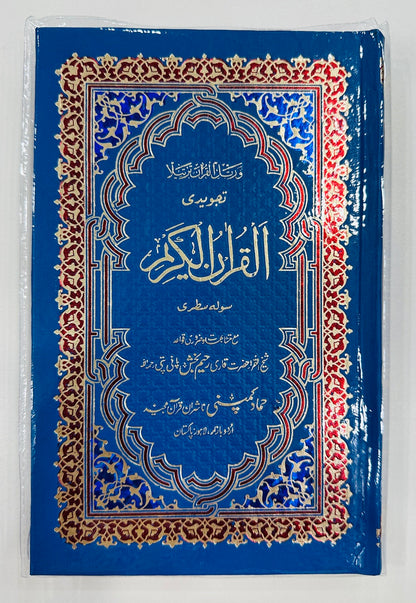 ورتل القرآن ترتیلا
تجویدی
اَلْقُرْاٰنُ الْکَرِیْمُ
سولہ سطری
مع متشابہات و ضروری قواعد
شیخ القراء حضرت قاری رحیم بخش پانی پتی رحمہ اللہ
حماد کمپنی ناشران قرآن مجید
اردو بازار، لاہور پاکستان